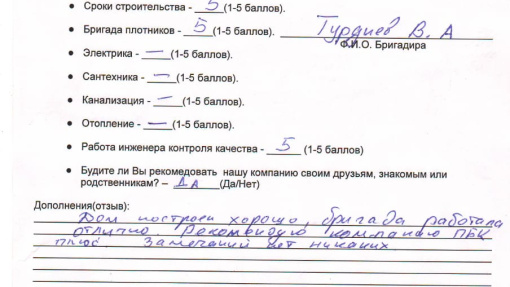 Сроки строительства - 5 (1-5 баллов).
Бригада плотников - 5 (1-5 баллов). Турдиев В. А
Ф.И.О. Бригадира
Электрика - — (1-5 баллов).
Сантехника - — (1-5 баллов).
Канализация - — (1-5 баллов).
Отопление - — (1-5 баллов).
Работа инженера контроля качества - 5 (1-5 баллов)
Будите ли Вы рекомедовать нашу компанию своим друзьям, знакомым или
родственникам? – ДА (Да/Нет)
Дополнения(отзыв):
Дом построен хорошо, бригада работала
отлично. Рекомендую компанию ПБК
плюс. Замечаний нет никаких.